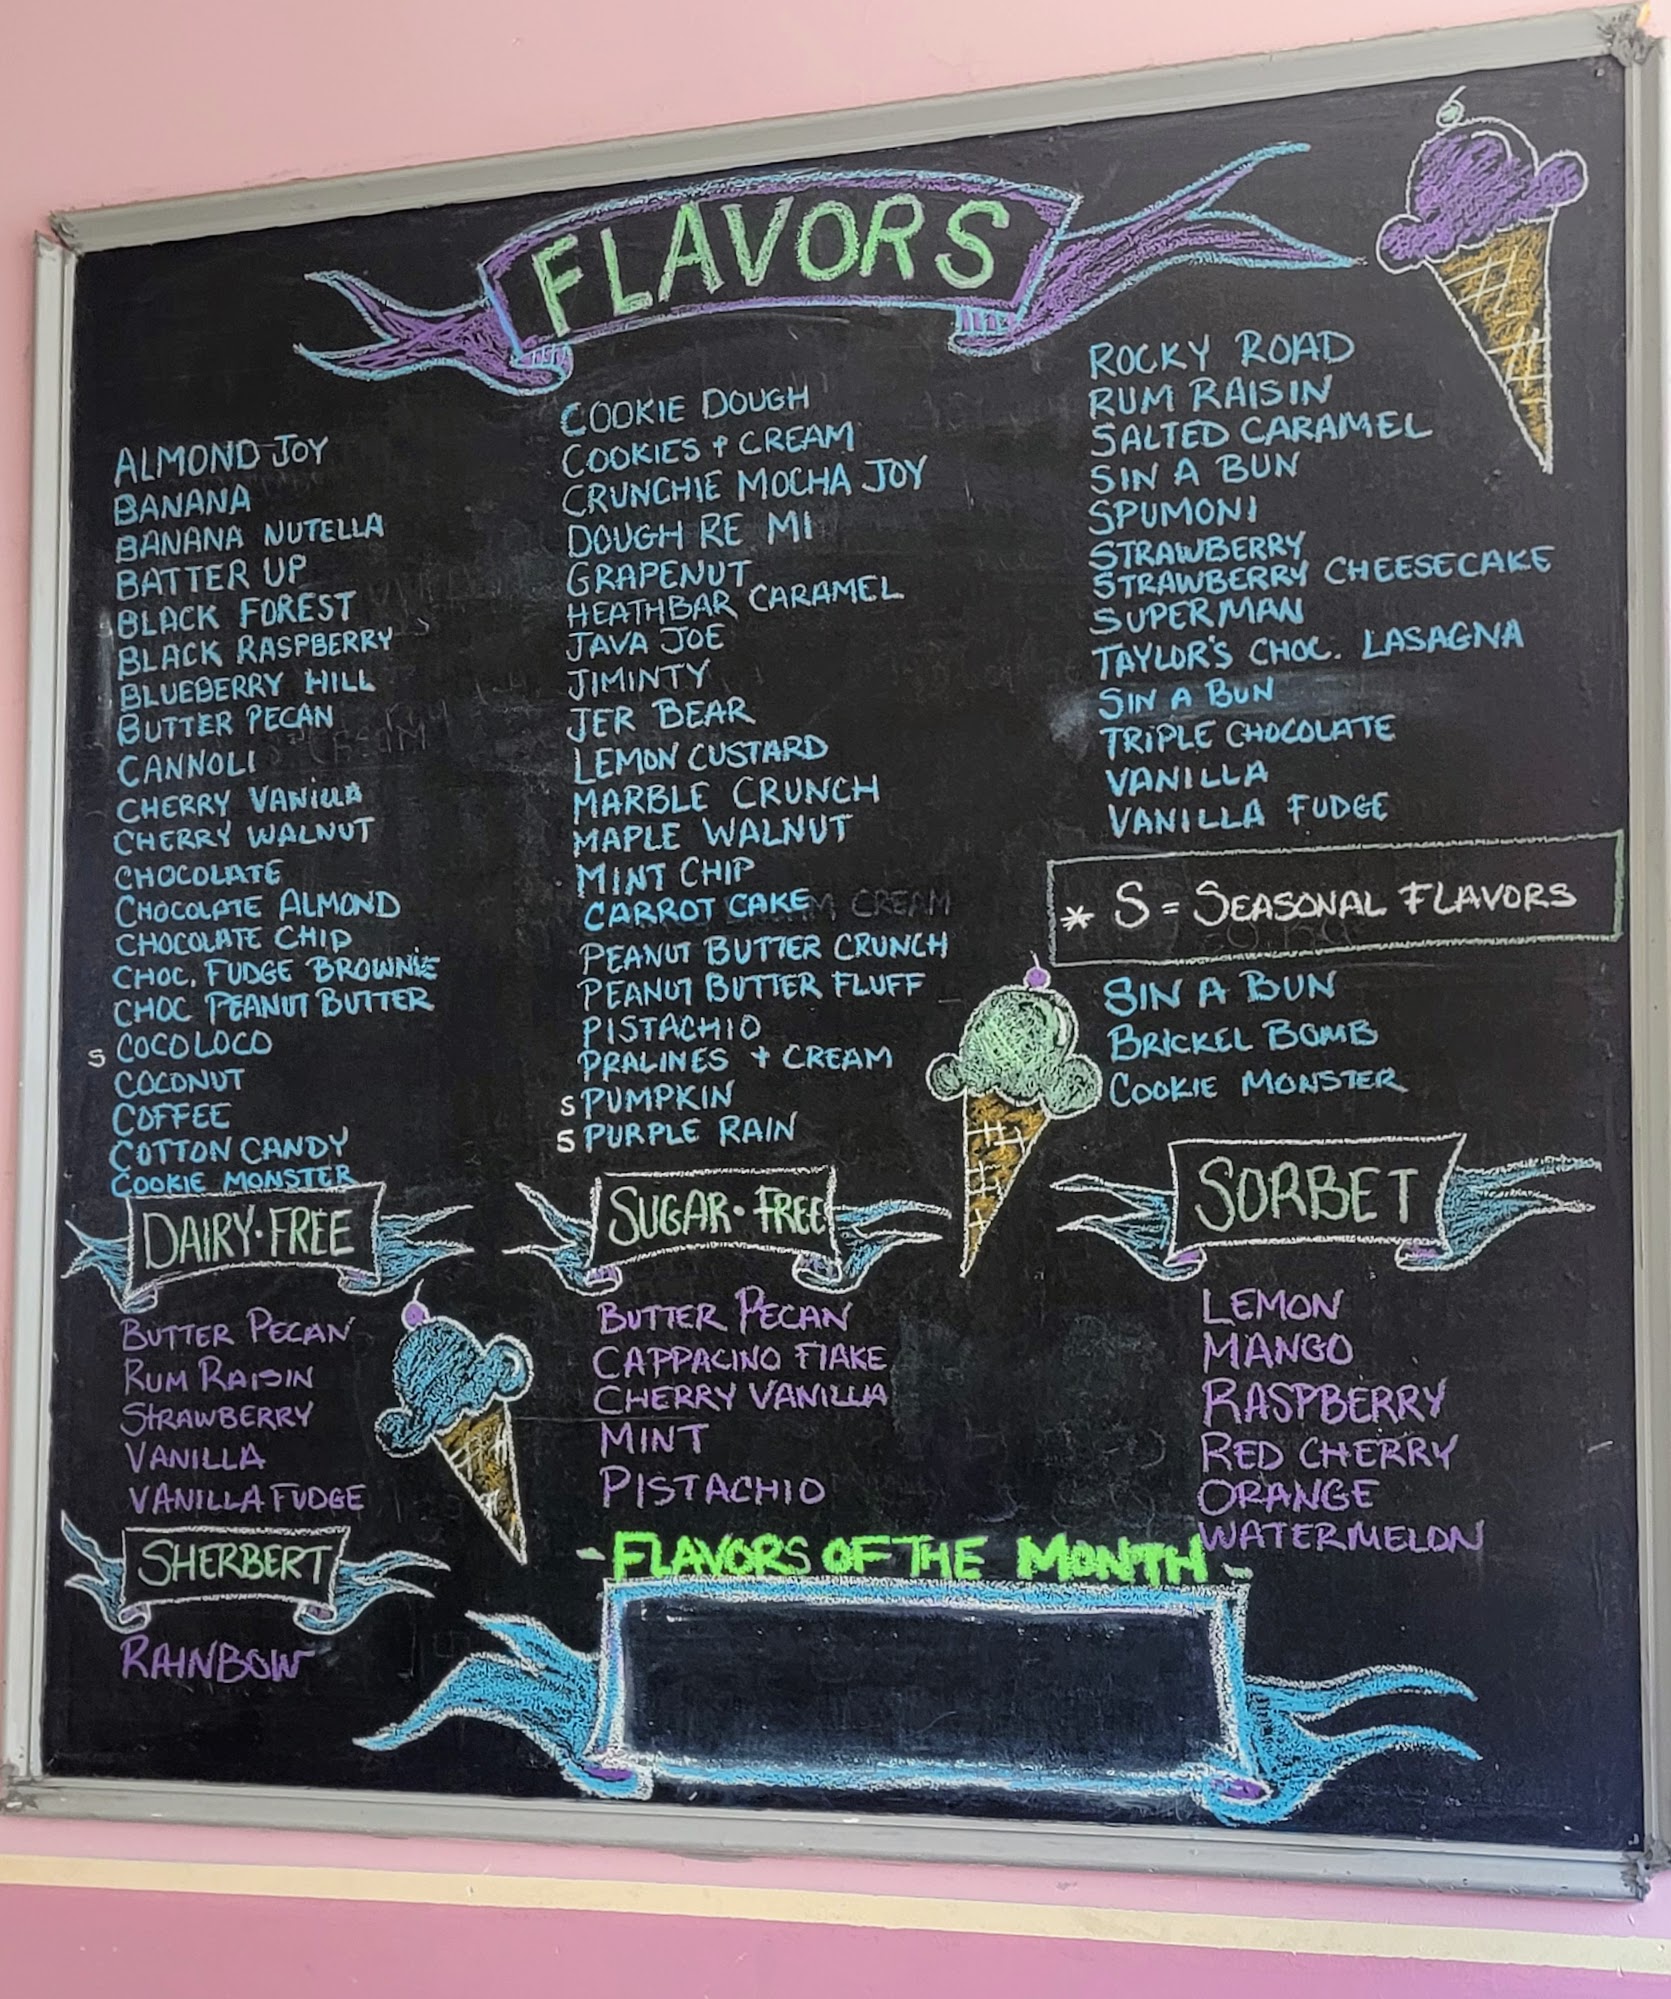 FLAVORS
ALMOND JOY
BANANA
BANANA NUTELLA
BATTER UP
BLACK FOREST
BLACK RASPBERRY
BLUEBERRY HILL
BUTTER PECAN
CANNOLI
CHERRY VANILLA
CHERRY WALNUT
CHOCOLATE
CHOCOLATE ALMOND
CHOCOLATE CHIP
CHOC. FUDGE BROWNIE
CHOC PEANUT BUTTER
S COCOLOCO
COCONUT
COFFEE
COTTON CANDY
COOKIE MONSTER
COOKIE DOUGH
COOKIES + CREAM
CRUNCHIE MOCHA JOY
DOUGH RE MI
GRAPENUT
HEATHBAR CARAMEL
JAVA JOE
JIMINTY
JER BEAR
LEMON CUSTARD
MARBLE CRUNCH
MAPLE WALNUT
MINT CHIP
CARROT CAKE CREAM
PEANUT BUTTER CRUNCH
PEANUT BUTTER FLUFF
PISTACHIO
PRALINES + CREAM
S PUMPKIN
S PURPLE RAIN
ROCKY ROAD
RUM RAISIN
SALTED CARAMEL
SIN A BUN
SPUMONI
STRAWBERRY
STRAWBERRY CHEESECAKE
SUPERMAN
TAYLOR'S CHOC. LASAGNA
SIN A BUN
TRIPLE CHOCOLATE
VANILLA
VANILLA FUDGE
* S = SEASONAL FLAVORS
SIN A BUN
BRICKEL BOMB
COOKIE MONSTER
DAIRY·FREE
BUTTER PECAN
RUM RAISIN
STRAWBERRY
VANILLA
VANILLA FUDGE
SHERBERT
RAINBOW
SUGAR·FREE
BUTTER PECAN
CAPPACINO FLAKE
CHERRY VANILLA
MINT
PISTACHIO
SORBET
LEMON
MANGO
RASPBERRY
RED CHERRY
ORANGE
WATERMELON
- FLAVORS OF THE MONTH -